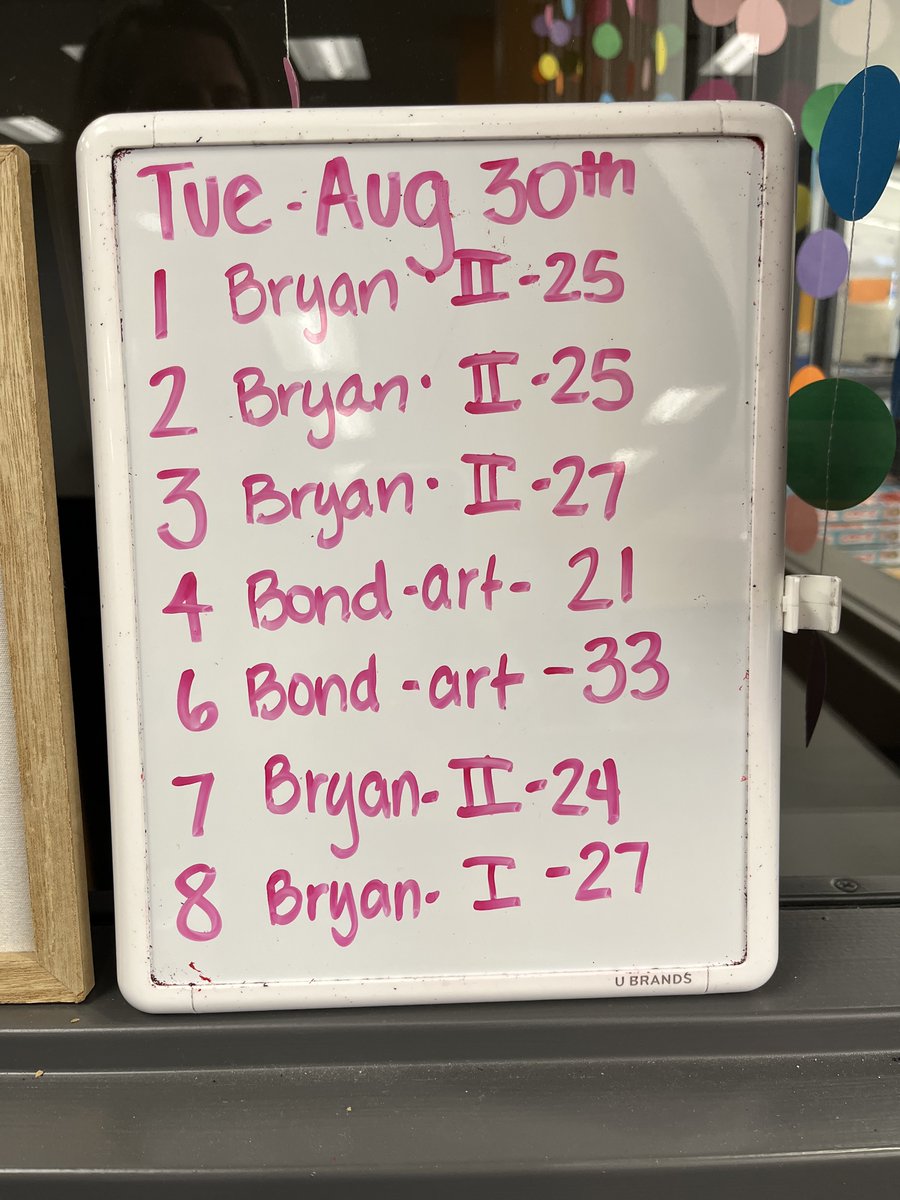 Tue - Aug 30th
1 Bryan · II - 25
2 Bryan · II - 25
3 Bryan · II - 27
4 Bond - art - 21
6 Bond - art - 33
7 Bryan - II - 24
8 Bryan - I - 27
U BRANDS